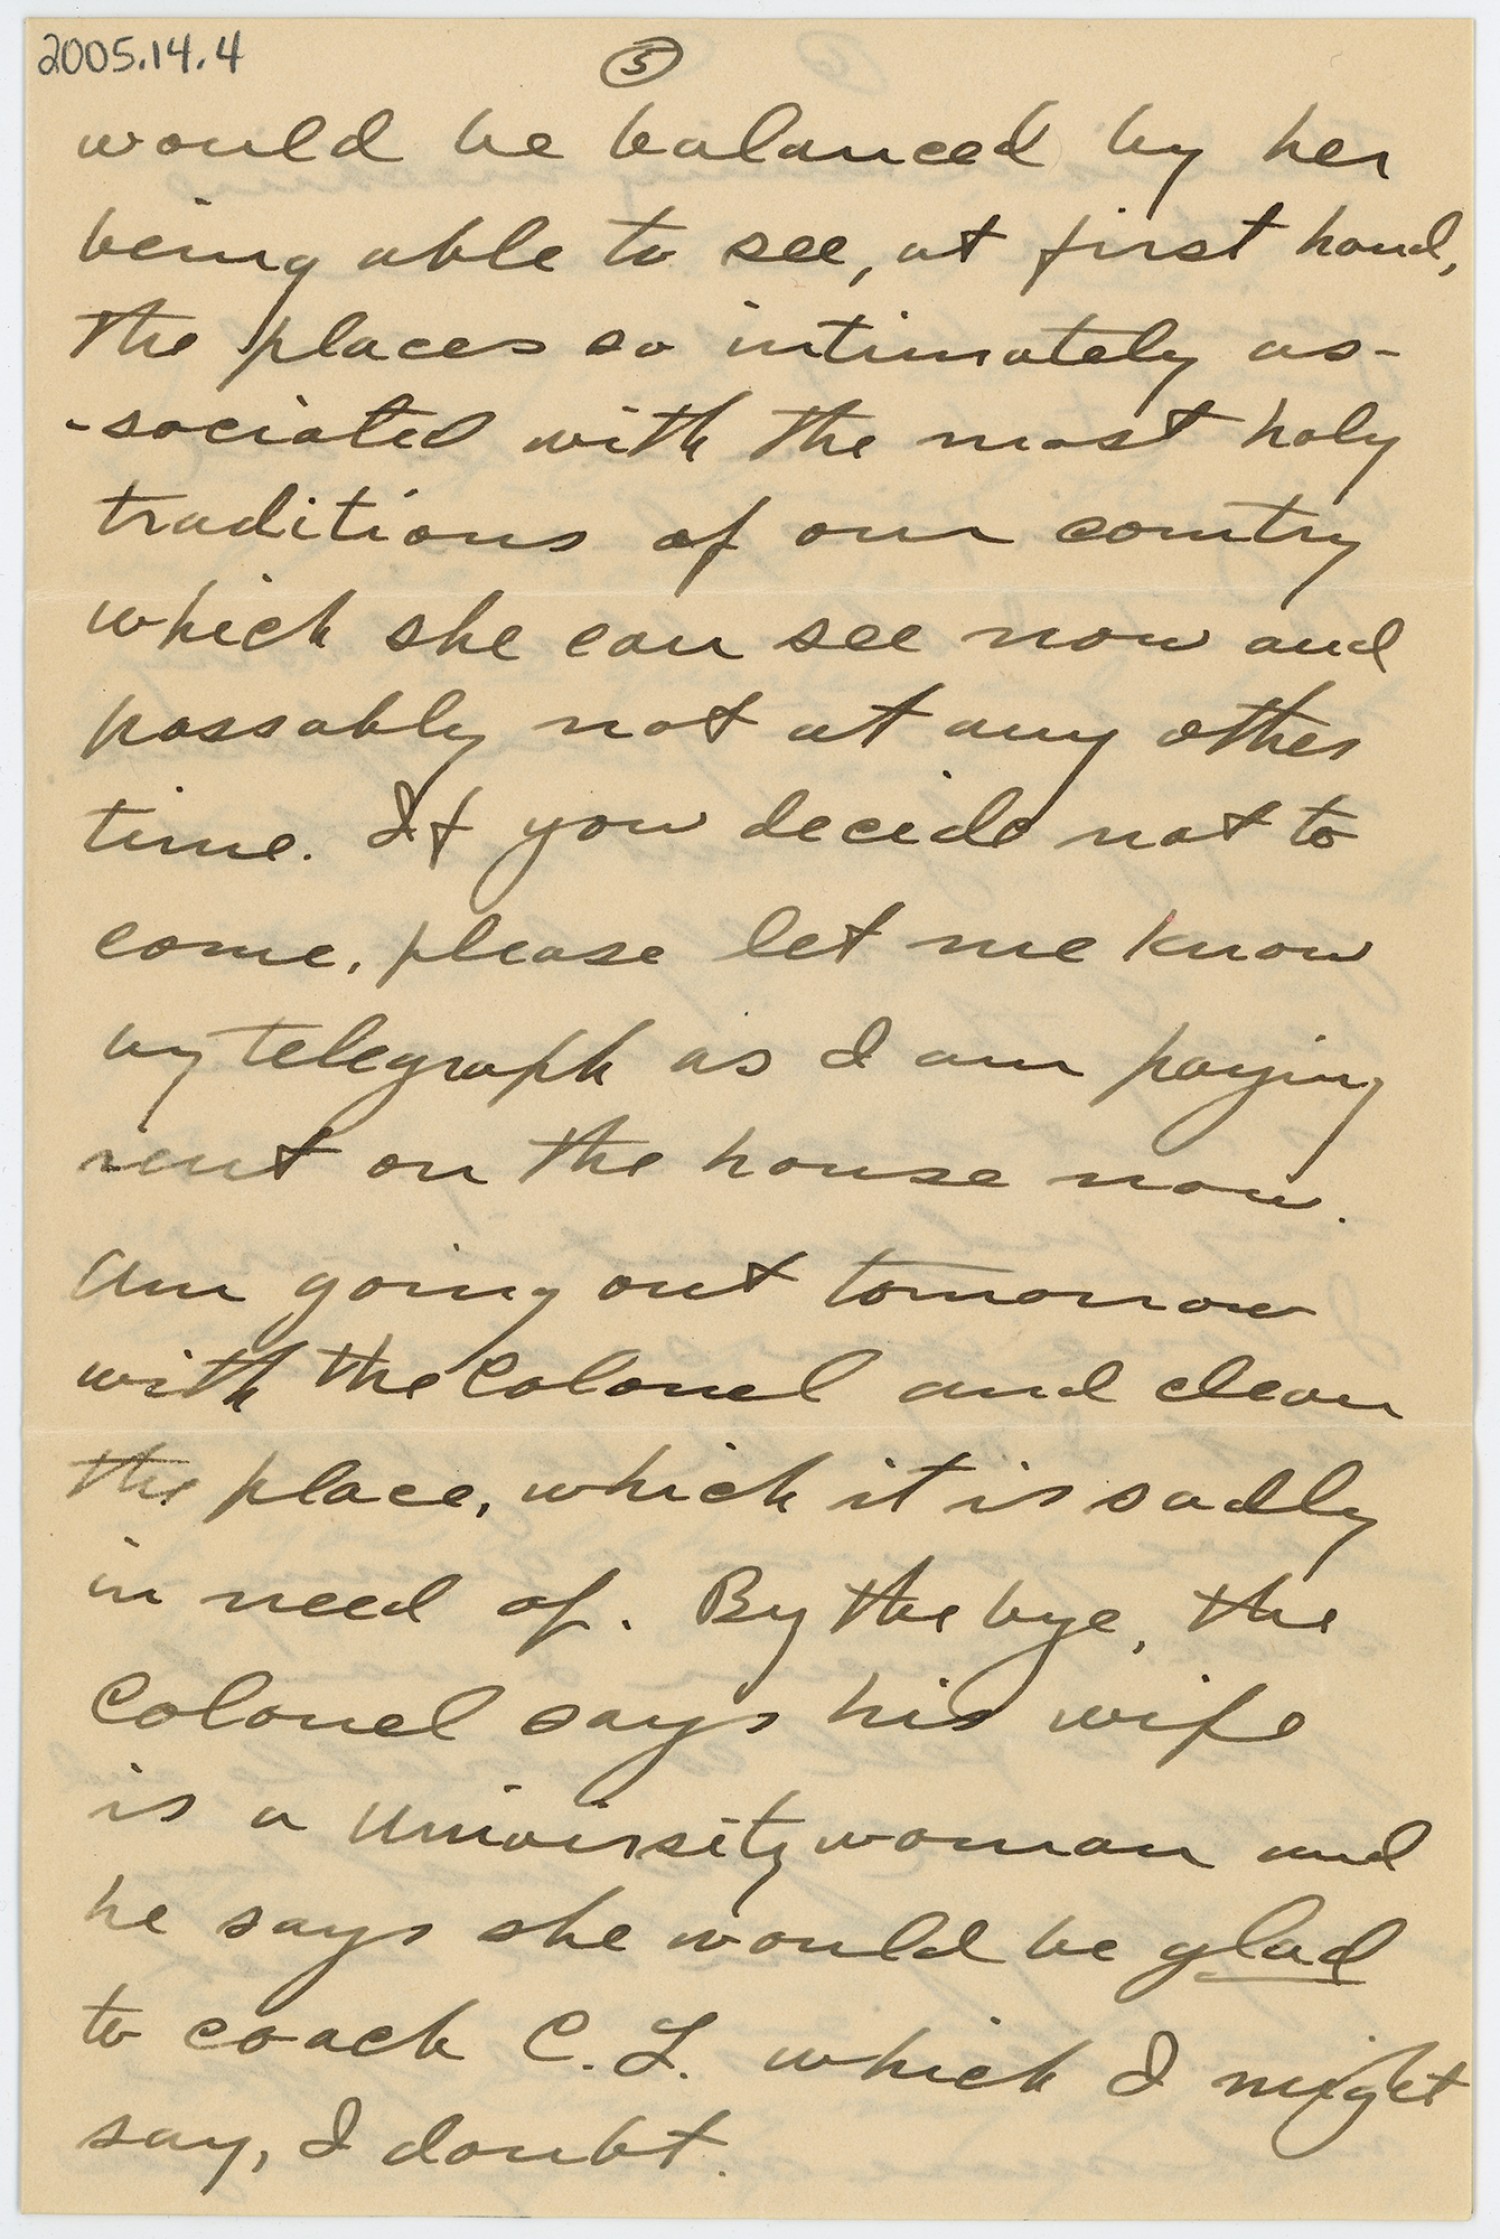 2005.14.4
5
would be balanced by her
being able to see, at first hand,
the places so intimately as-
-sociated with the most holy
traditions of our country
which she can see now and
possably not at any other
time. If you decide not to
come, please let me know
by telegraph as I am paying
rent on the house now.
Am going out tomorrow
with the Colonel and clean
the place, which it is sadly
in need of. By the bye, the
Colonel says his wife
is a Univirsity woman and
he says she would be glad
to coach C.L. which I might
say, I doubt.